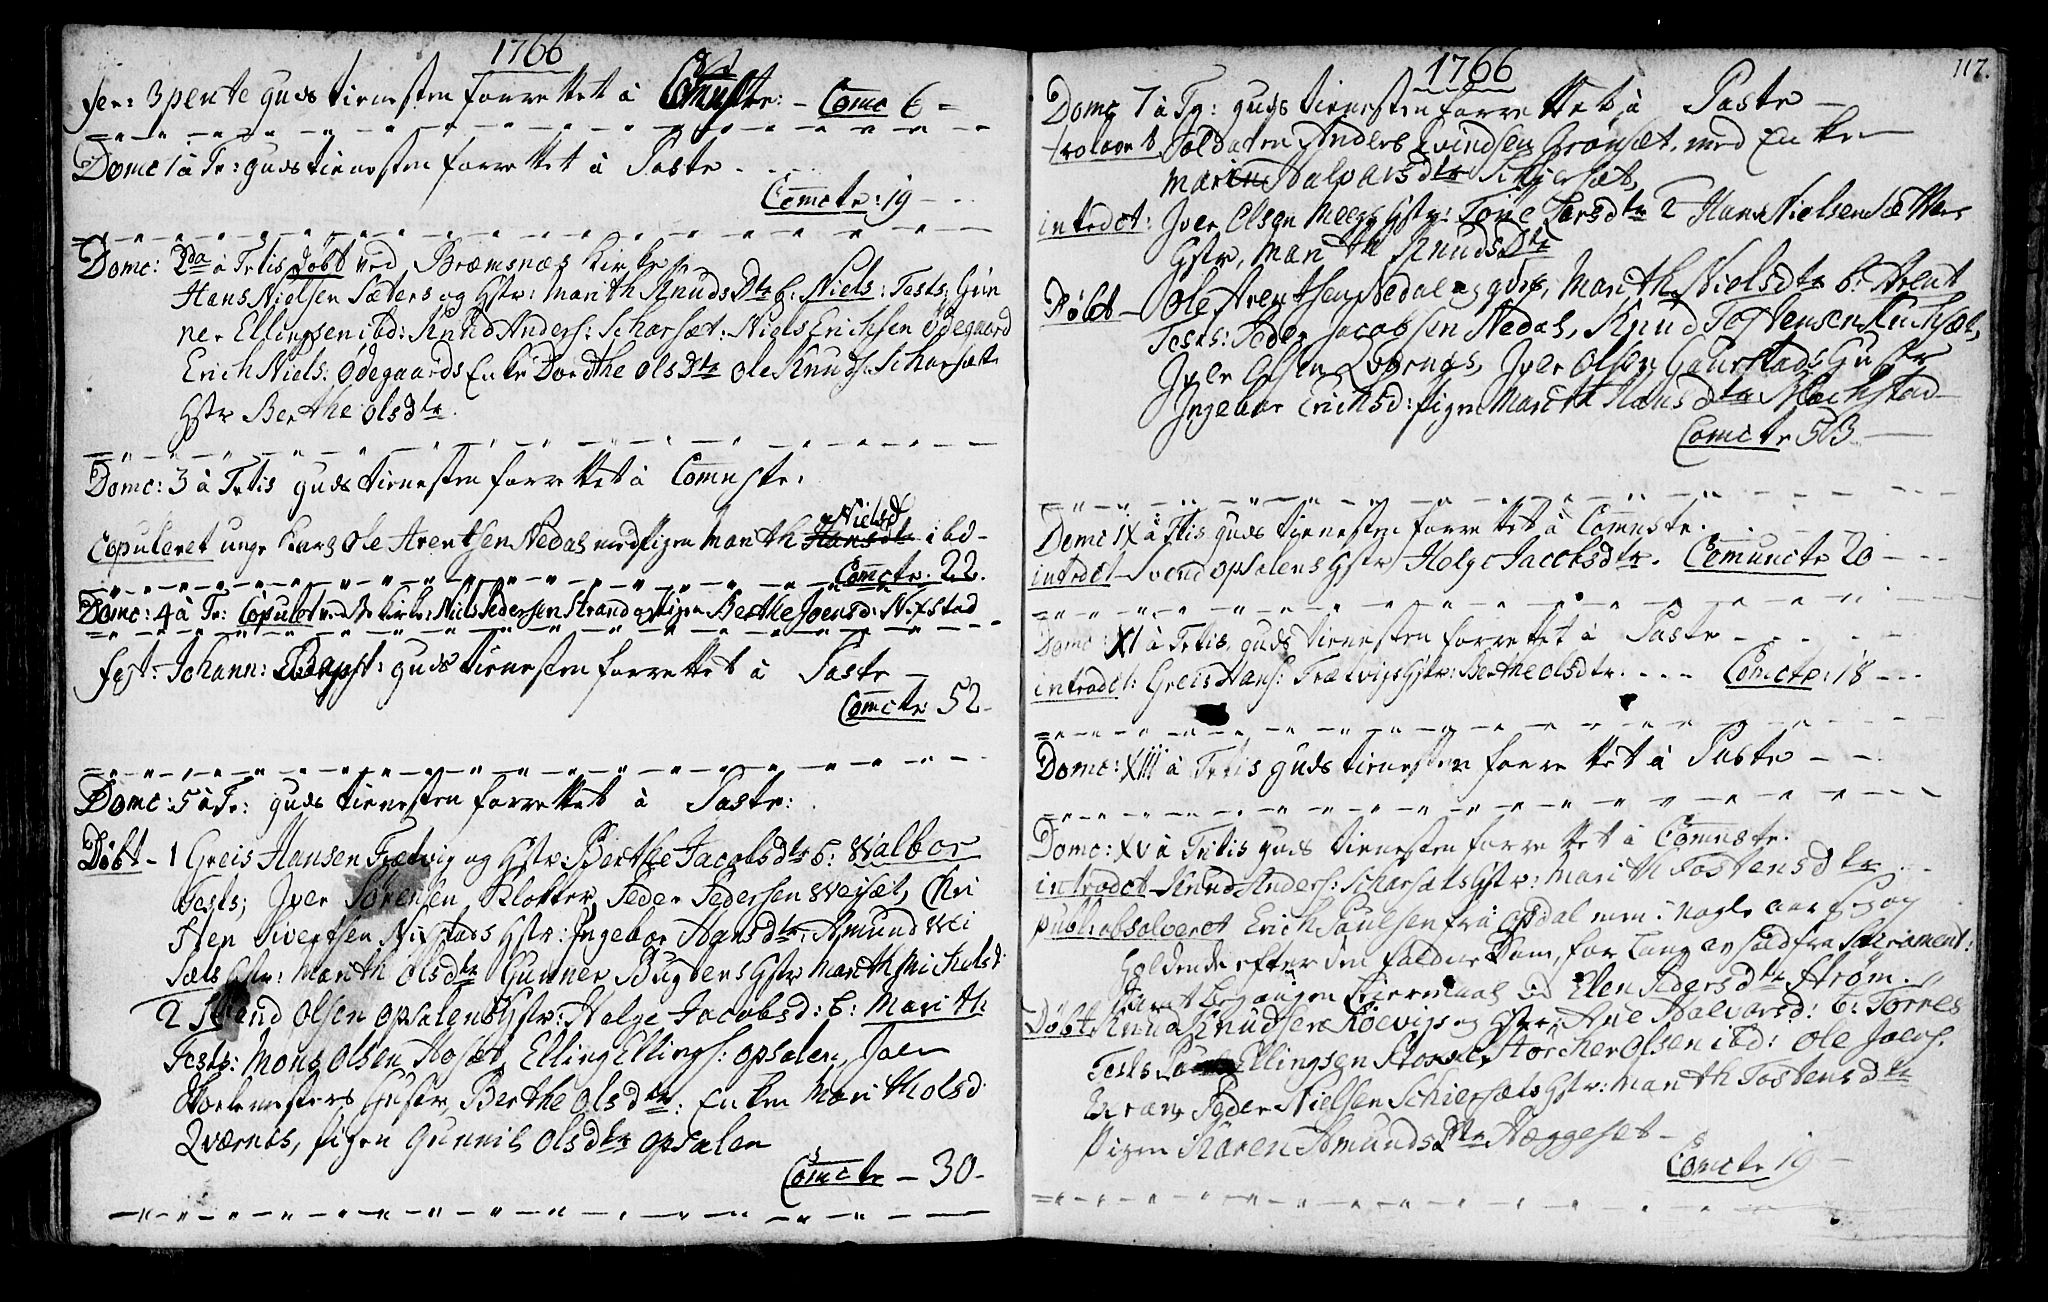 1766
fer: 3 pente guds tienesten forrettet à Comnste: - Comc 6 =
Domc 1 à Tr: guds tienesten forrettet à Paste -
Comcte: 19 -
Domc: 2da à Tritis Døbt ved Bræmsnæs Kirke
Hans Nielsen Sæters og Hstr: Marith Knuds Dtr b: Niels: Tests: Gun
ner Ellingsen ibd: Knud Anders: Scharsæt: Niels Erichsen Ødegaard
Erich Niels: Ødegaards Enke Dordthe Ols Dtr Ole Knuds: Scharsæts
Hstr Berthe Olsdtr.
Domc: 3 à Tritis guds tienesten forrettet à Comnste:
Copuleret unge Karl Ole Arentsen Nedal med Pigen Marith Nielsd ibd -
Comcte: 22.
Domc: 4 à Tr: Copulet ved Kirke: Niels Pedersen Strand og Pigen Berthe Joensd: Nixstad
fest: Johann: Bapt: guds tienesten forrettet à Paste -
Comcte 52 -
Domc: 5 à Tr: guds tienesten forrettet à Paste:
Døbt - 1 Greis Hansen Trætvig og Hstr: Berthe Jacobsdtr b: Walbor
Tests; Iver Sørensen Klokker, Peder Pedersen Weisæt, Chri
sten Sivertsen Nixstads Hstr: Ingebor Hansdtr, Amund Wei
sæts Hstr: Marith Olsdtr Gunner Bugdens Hstr Marith Michelsd:
2 Svend Olsen Opsalen Hstr: Helge Jacobsd: b: Marith
Tests: Mons Olsen Hosæt, Elling Ellings: Opsalen, Joen
Skolemesters Hustr, Berthe Olsdtr: Enken Marith Olsd
Qværnes, Pigen Gunnil Olsdtr Opsalen
Comcte - 30 -
1766
117.
Domc 7 à Tr: guds tienesten forrettet à Paste -
trolovet Soldaten Anders Evindsen Grønsæt, med Enken
Marith Halvarsdtr Schjersæt,
introdct: Iver Olsen Meegs Hstr: Tøne Larsdtr 2 Hans Nielsen Sætters
Hstr, Marith Knuds Dtr
Døbt - Ole Arentsen Nedal og Hstr, Marith Nielsdtr b: Arent
Tests: Peder Jacobsen Nedal, Knud Tostensen
Iver Olsen Qvernes, Iver Olsen Gaustads Hustr
Ingebor Erichsd: Pigen Marith Hansdtr Mochstad
Comcte 53
Domc IX à Ttis guds tienesten forrettet à Comnste.
introdct Svend Opsalens Hstr Helge Jacobsdtr. Comuncte 20 -
Domc: XI à Tritis, guds tienesten forrettet à Paste -
introdct: Greis Hans: Trætvigs Hstr: Berthe Olsdtr: - Comcte: 18 -
Domc: XIII à Tritis guds tienesten forrettet à Paste - -
Domc: XV à Tritis guds tienesten forrettet à Comnste.
introdct Knud Anders: Scharsæts Hstr: Marith Tostensdtr
publ: absolveret Erich Paulsen fra Opdal nem: nogle aar
holdende efter den faldne Dom, for Lang ophold fra Sacrament:
samt begangen Leiermaal Elen Pedersdtr Strøm.
Døbt Knud Knudsen Røevigs og Hstr, Ane Halvarsd: b: Tørres
Tests Ellingsen, Størcher Olsen ibd: Ole Joens:
Peder Nielsen Schiersæts Hstr: Marith Tostensdtr
Pigen Karen Amunds Dtr Hæggeset -
Comcte 19 -